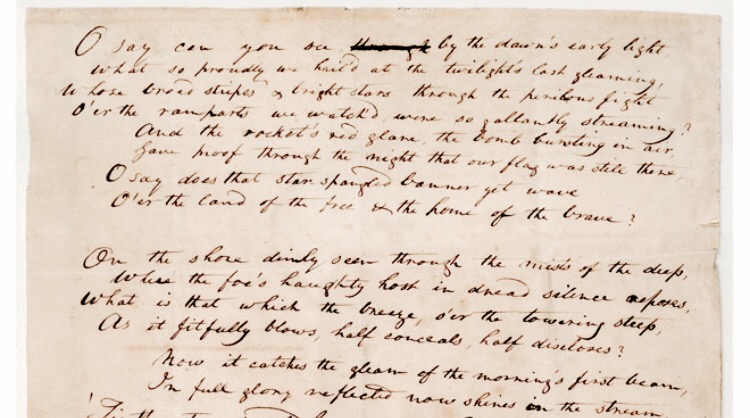 O say can you see ~~through~~ by the dawn's early light,
What so proudly we hail'd at the twilight's last gleaming,
Whose broad stripes & bright stars through the perilous fight
O'er the ramparts we watch'd, were so gallantly streaming?
And the rocket's red glare, the bomb bursting in air,
Gave proof through the night that our flag was still there,
O say does that star-spangled banner yet wave
O'er the land of the free & the home of the brave?
On the shore dimly seen through the mists of the deep,
Where the foe's haughty host in dread silence reposes,
What is that which the breeze, o'er the towering steep,
As it fitfully blows, half conceals, half discloses?
Now it catches the gleam of the morning's first beam,
In full glory reflected now shines in the stream